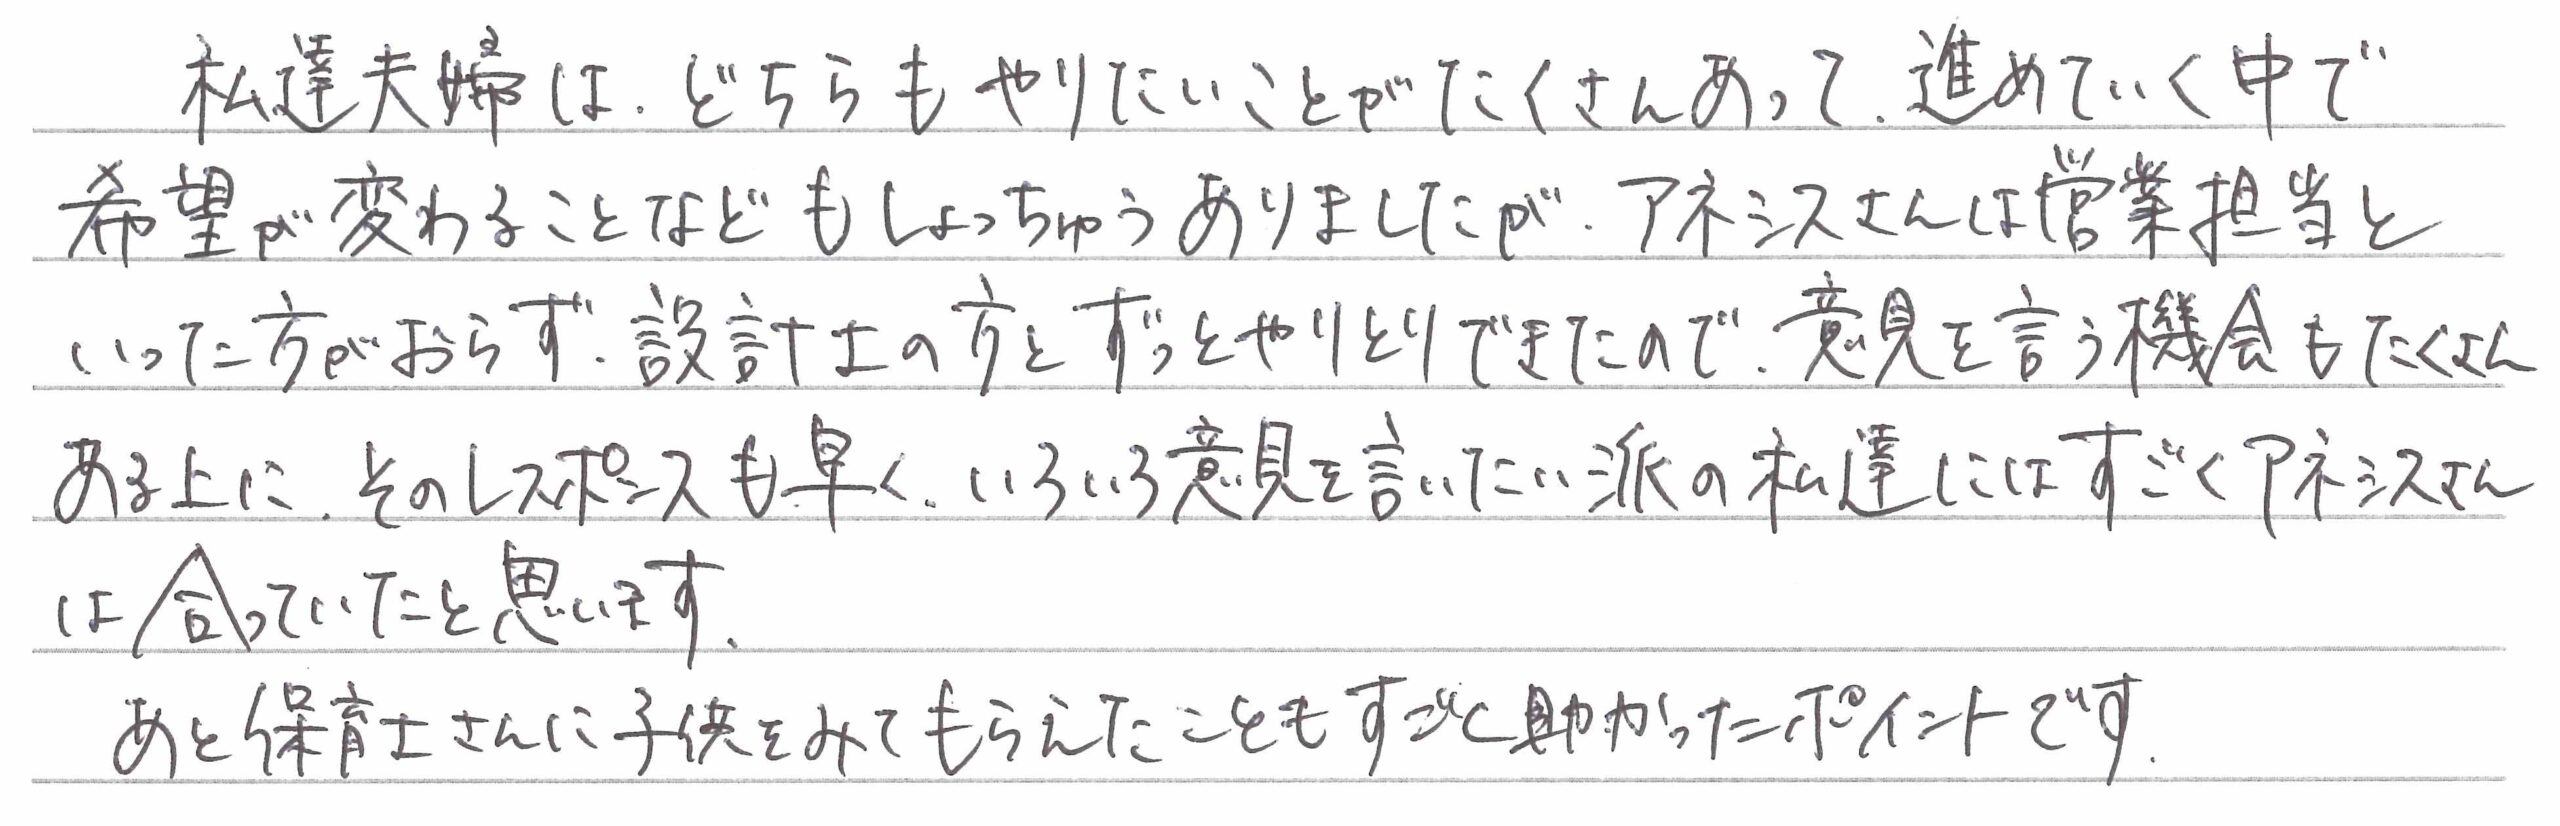 私達夫婦は、どちらもやりたいことがたくさんあって、進めていく中で
希望が変わることなどもしょっちゅうありましたが、アネシスさんは営業担当と
いった方がおらず、設計士の方とずっとやりとりできたので、意見を言う機会もたくさん
ある上に、そのレスポンスも早く、いろいろ意見を言いたい派の私達にはすごくアネシスさん
は合っていたと思います。
あと保育士さんに子供をみてもらえたこともすごく助かったポイントです。